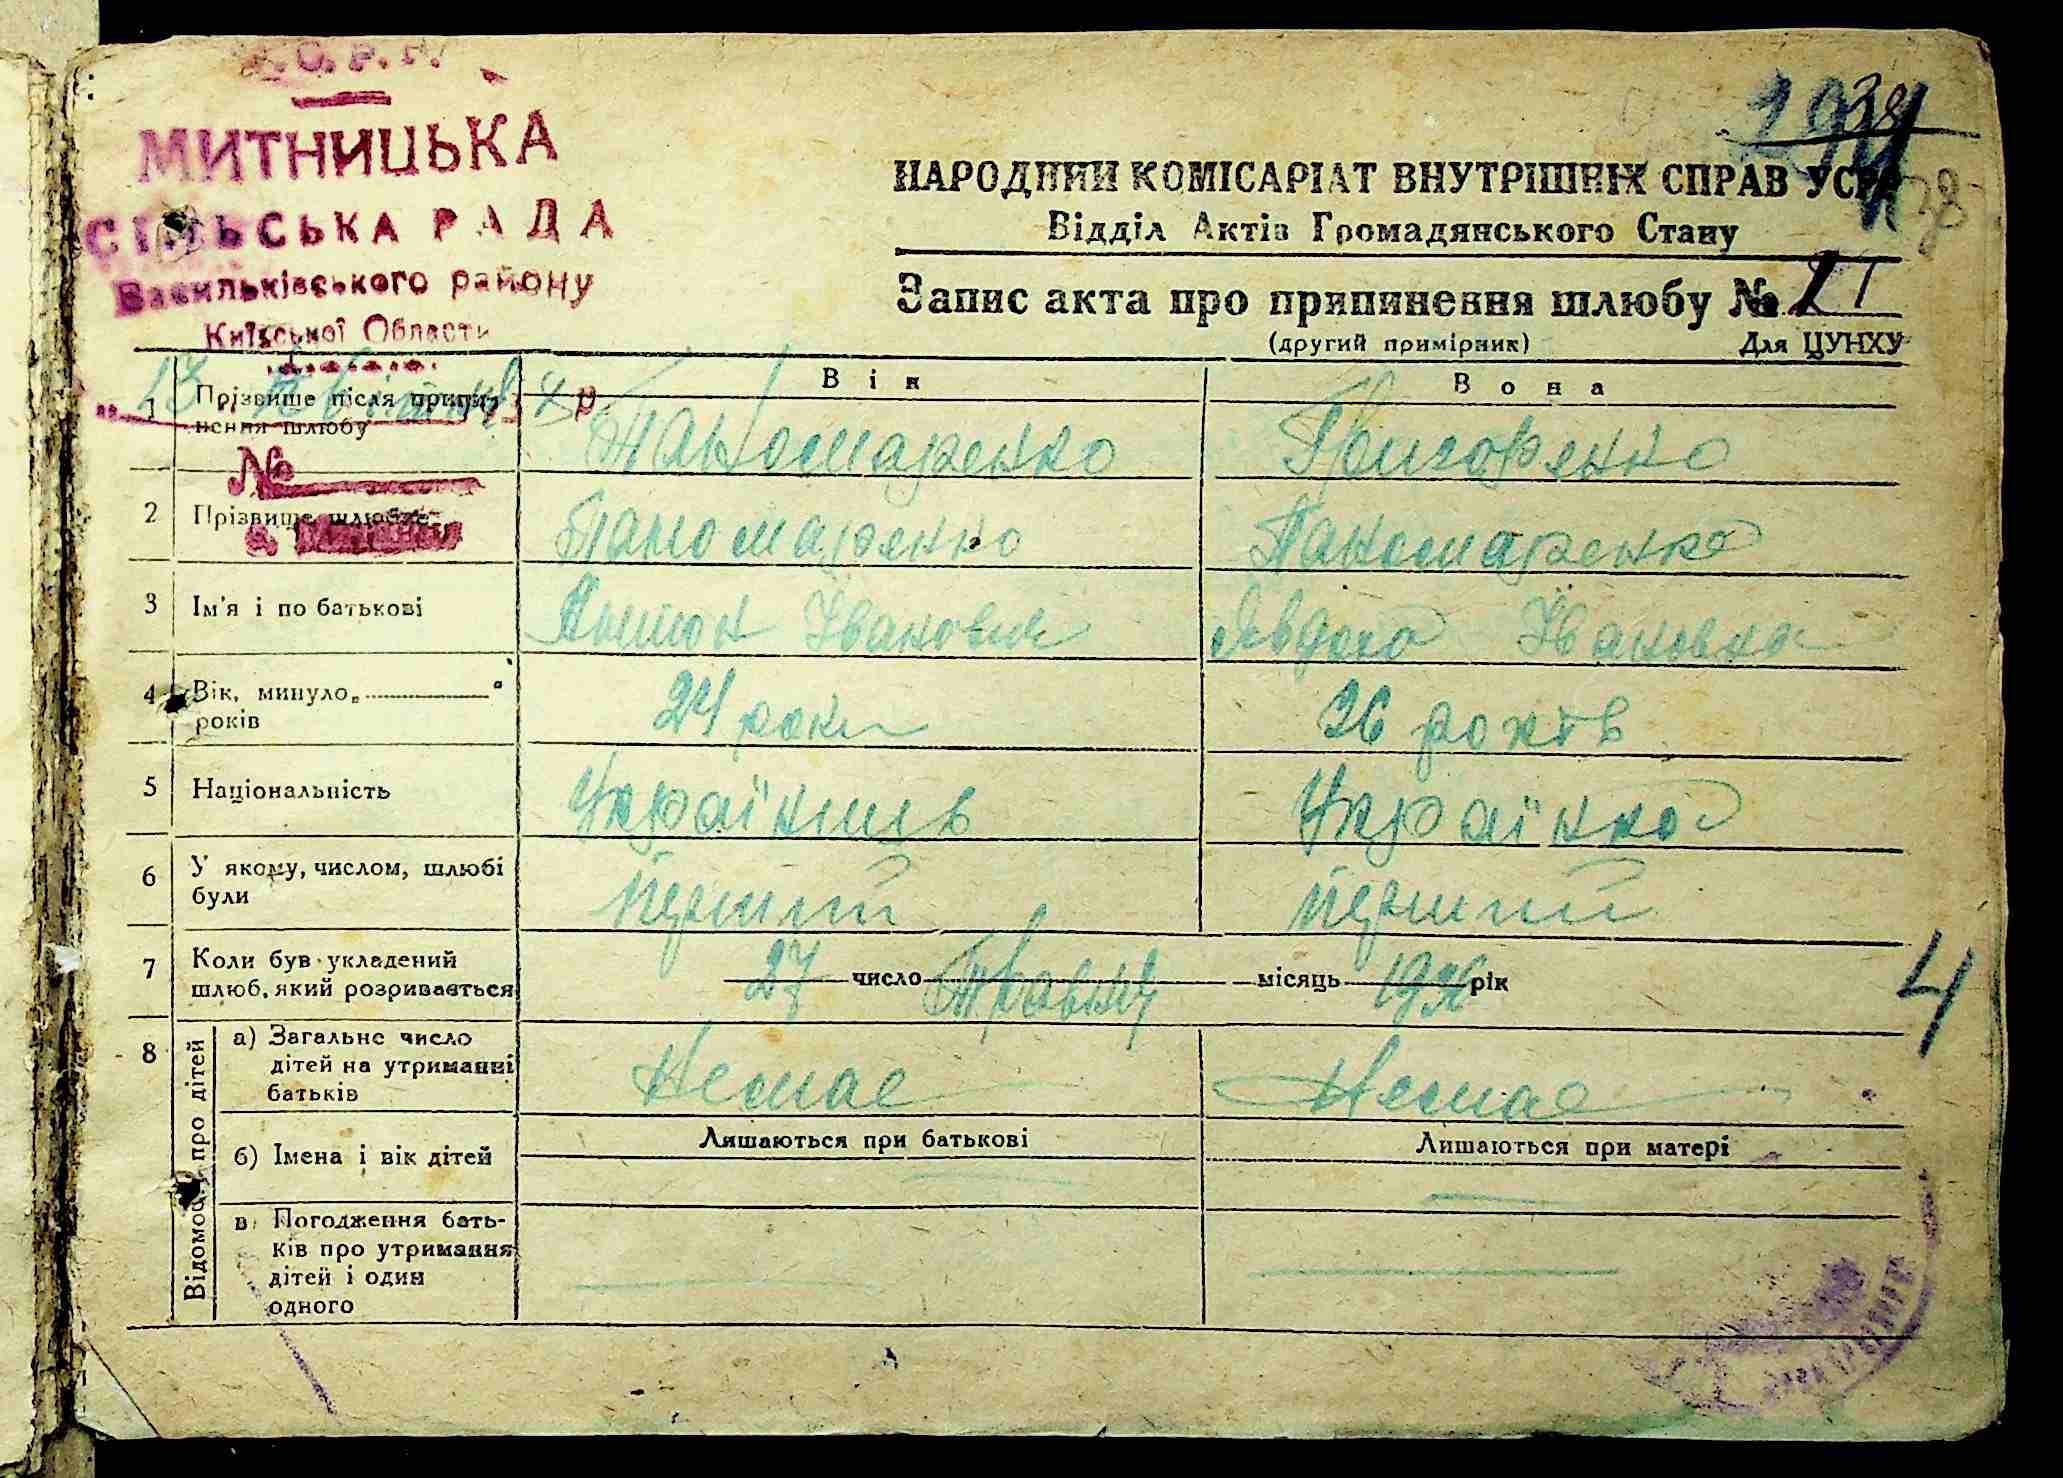 У.С.Р.Р.
МИТНИЦЬКА
СІЛЬСЬКА РАДА
Васильківського району
Київської Области
№
НАРОДНИЙ КОМІСАРІАТ ВНУТРІШНІХ СПРАВ УСРР
Відділ Актів Громадянського Стану
Запис акта про припинення шлюбу №
(другий примірник) Для ЦУНХУ
Він Вона
1 Прізвище після припинення шлюбу Паномаренко Григоренко
2 Прізвище шлюбне Паномаренко Паномаренко
3 Ім'я і по батькові Іванович Явдоха Івановна
4 Вік, минуло „ "
років 24 роки 26 років
5 Національність Українець Українка
6 У якому, числом, шлюбі
були перший перший
7 Коли був укладений
шлюб, який розривається 27 число Травня місяць 1936 рік
8 Відомості про дітей
а) Загальне число
дітей на утриманні
батьків Немає Немає
б) Імена і вік дітей Лишаються при батькові Лишаються при матері
в) Погодження бать-
ків про утримання
дітей і один
одного
4